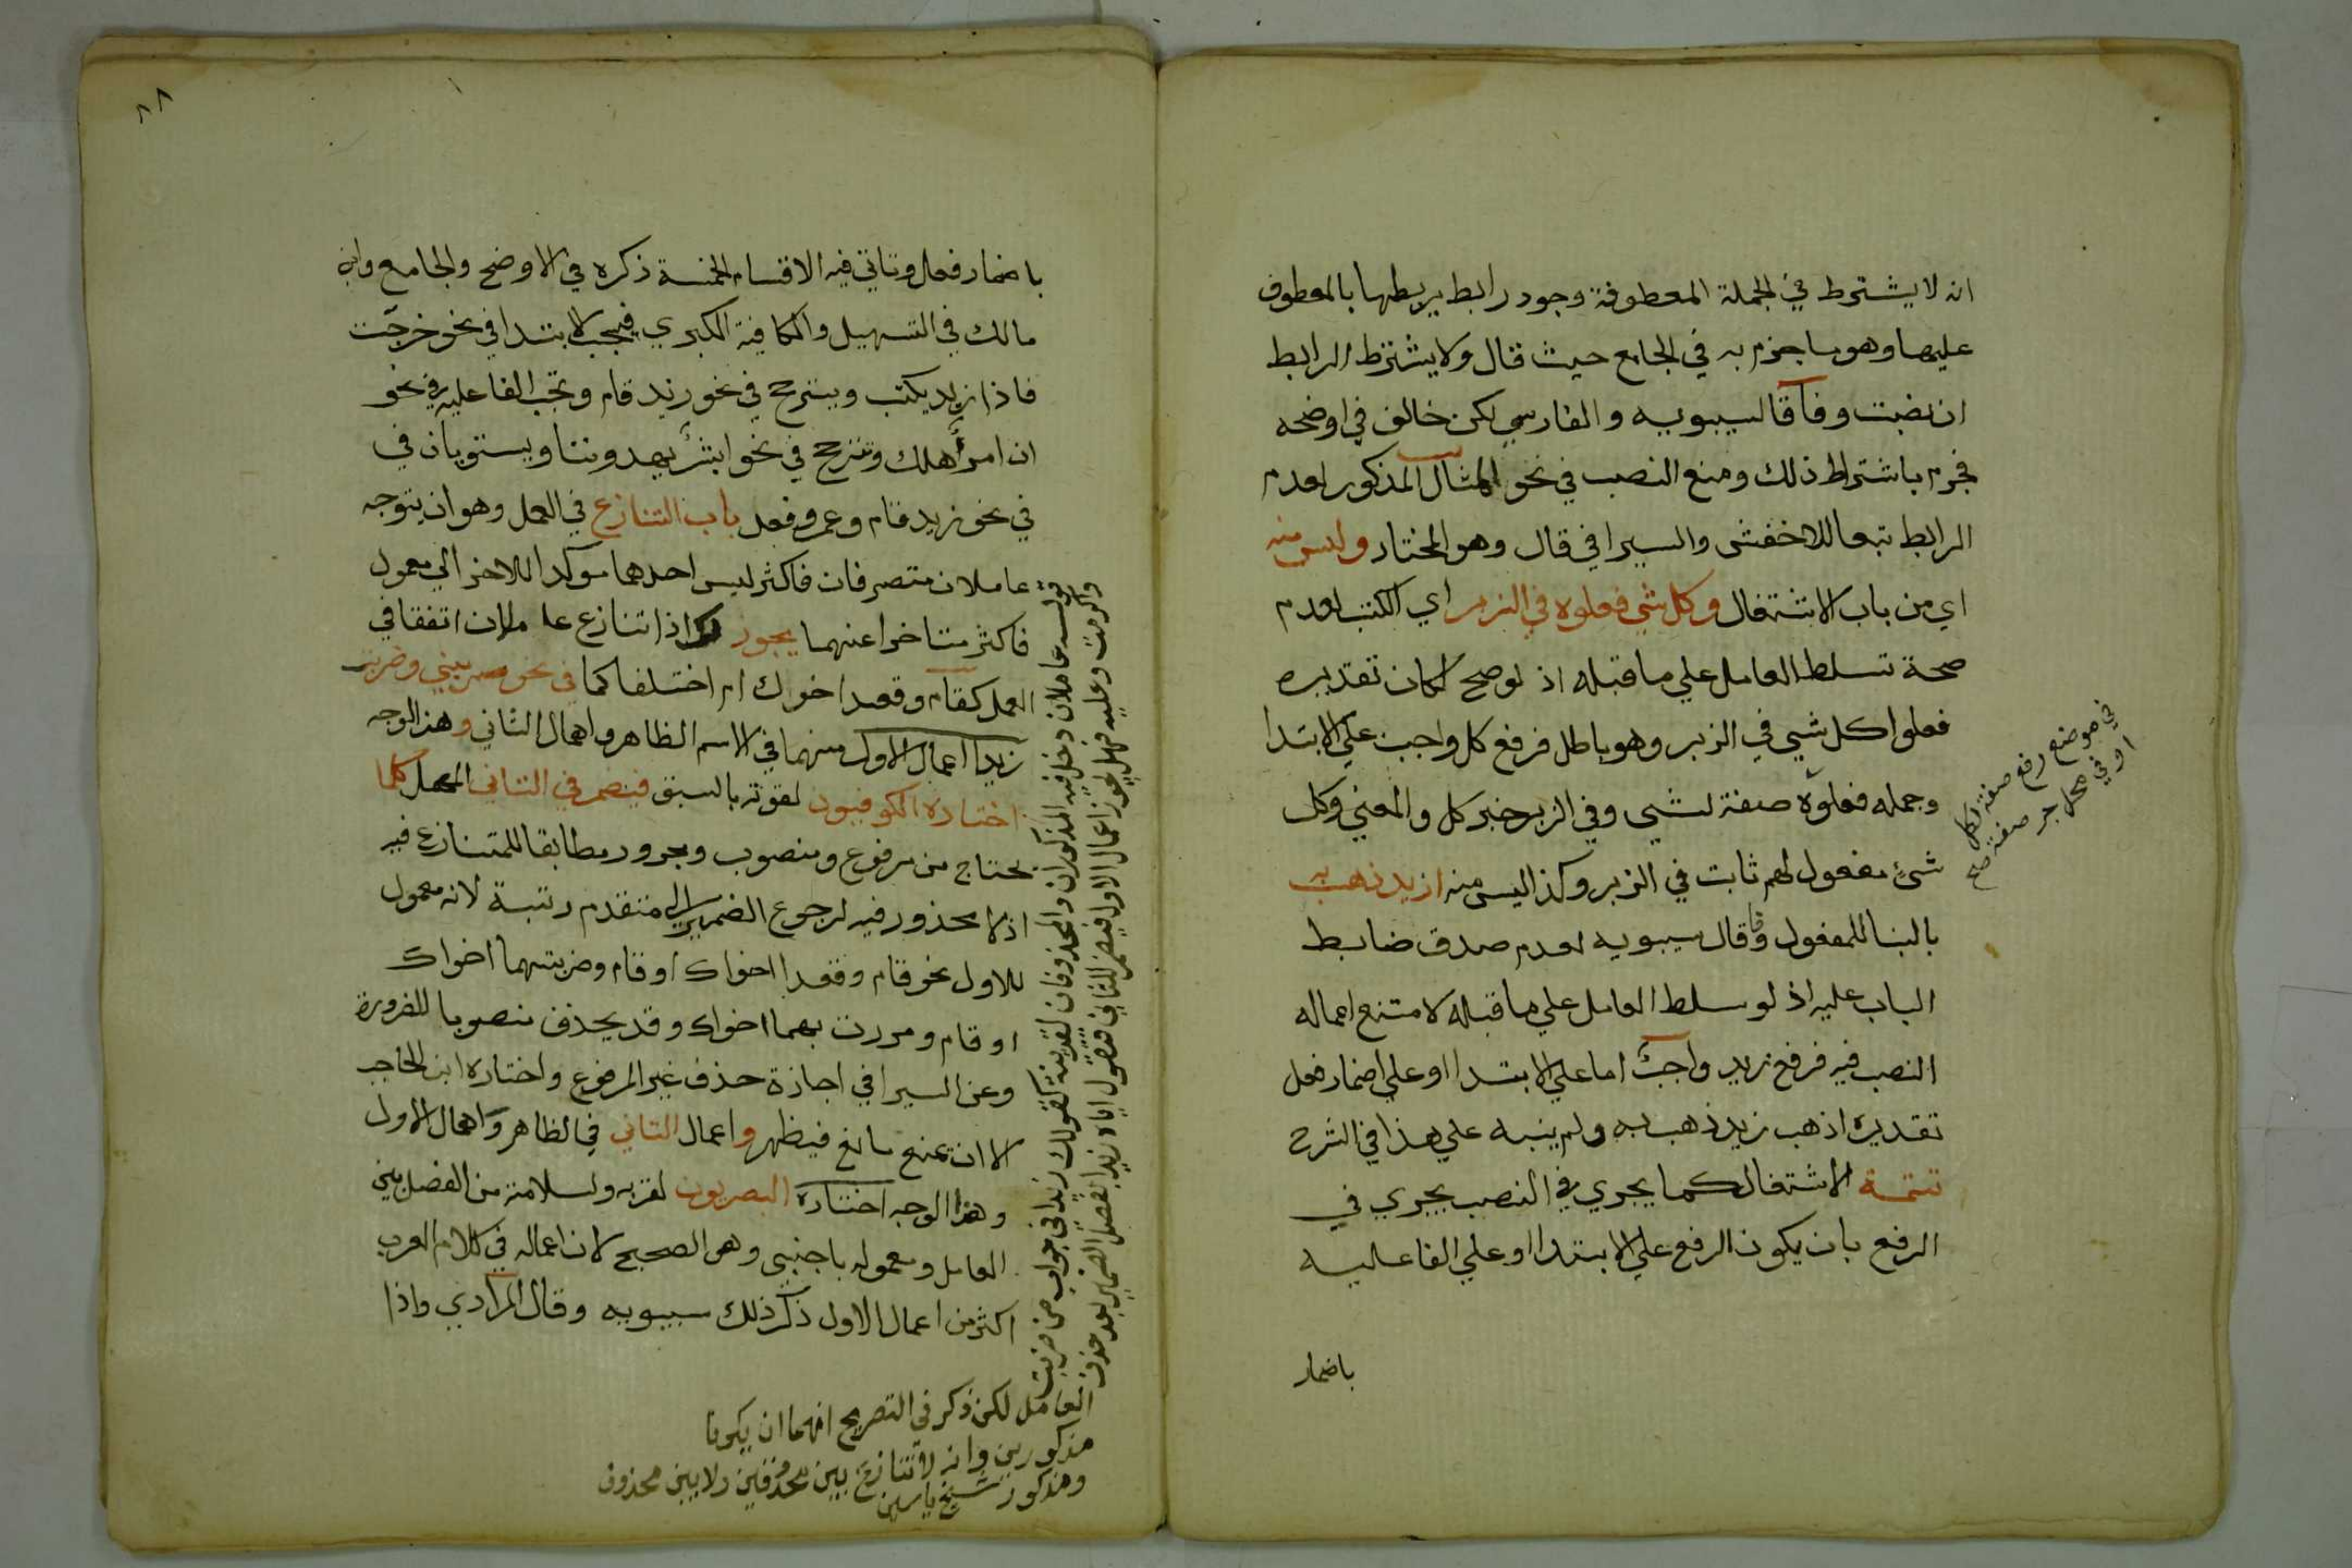 انه لا يشترط في الجملة المعطوفة وجود رابط يربطها بالمعطوف
عليها وهو ما جزم به في الجامع حيث قال ولا يشترط الرابط
ان نصبت وفاقا لسيبويه والفارسي لكن خالف في اوضحه
فجزم باشتراط ذلك ومنع النصب في نحو المثال المذكور لعدم
الرابط تبعا للاخفش والسيرافي قال وهو المختار وليس منه
اي من باب الاشتغال وكل شي فعلوه في الزبر اي الكتب لعدم
صحة تسلط العامل علي ما قبله اذ لو صح لكان تقديره
فعلوا كل شيي في الزبر وهو باطل فرفع كل واجب علي الابتدا
وجمله فعلوه صفة لشيي وفي الزبر خبر كل والمعني وكل
شئ مفعول لهم ثابت في الزبر وكذا ليس منه ازيد ذهب به
بالبنا للمفعول وفاقا لسيبويه لعدم صدق ضابط
الباب عليه اذ لو سلط العامل علي ما قبله لامتنع اعماله
النصب فيه فرفع زيد واجب اما علي الابتدا او علي اضمار فعل
تقديره اذهب زيد ذهب به ولم ينبه علي هذا في الشرح
تتمة الاشتغال كما يجري في النصب يجري في
الرفع بان يكون الرفع علي الابتدا او علي الفاعليه
باضمار
في موضع رفع صفة لكل
او في محل جر صفة صح
٨٨
باضمار فعل وتاتي فيه الاقسام الخمسة ذكره في الاوضح والجامع وابن
مالك في التسهيل والكافية الكبري فيجب الابتدا في نحو خرجت
فاذا زيد يكتب ويترجح في نحو زيد قام وتجب الفاعلية في نحو
ان امرأ هلك وتترجح في نحو ابشر يهدوننا ويستويان في
في نحو زيد قام وعمرو قعد باب التنازع في العمل وهو ان يتوجه
عاملان متصرفان فاكثر ليس احدهما موكدا للاخر الي معمول
فاكثر متاخر عنهما يجوز اذا تنازع عاملان اتفقا في
العمل كقام وقعد اخواك ام اختلفا كما في نحو ضربني وضربت
زيدا اعمال الاول منهما في الاسم الظاهر واهمال الثاني وهذا الوجه
اختاره الكوفيون لقوته بالسبق فيضمر في الثاني المهمل كلما
يحتاج من مرفوع ومنصوب ومجرور مطابقا للمتنازع فيه
اذ لا محذور فيه لرجوع الضمير الي متقدم رتبة لانه معمول
للاول نحو قام وقعدا اخواك او قام وضربتهما اخواك
او قام ومررت بهما اخواك وقد يحذف منصوبا للضرورة
وعن السيرافي اجازة حذف غير المرفوع واختاره ابن الحاجب
الا ان يمنع مانع فيظهر واعمال الثاني في الظاهر واهمال الاول
وهذا الوجه اختاره البصريون لقربه ولسلامته من الفصل بين
العامل ومعموله باجنبي وهو الصحيح لان اعماله في كلام العرب
اكثر من اعمال الاول ذكر ذلك سيبويه وقال المرادي واذا
قوله عاملان دخل فيه المذكوران والمحذوفان لقرينة كقولك زيدا في جواب من ضربت
واكرمت وعليه فهل يجوز اعمال الاول فيضمر للثاني فتقول اياه زيدا لفصل الضمير بعد حذف
العامل لكن ذكر في التصريح انهما ان يكونا
مذكورين وانه لا تنازع بين محذوفين ولا بين محذوف
ومذكور شيخ ياسين